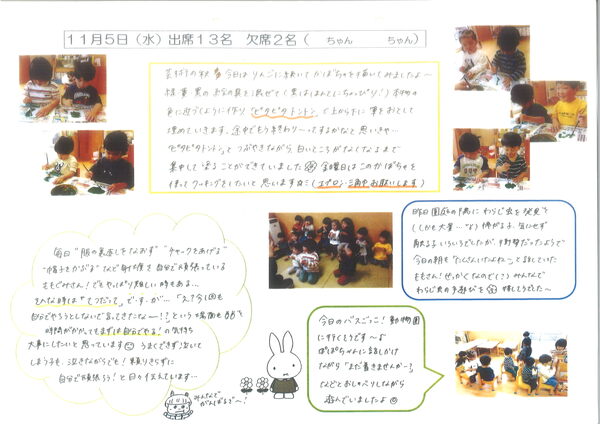 11月5日（水）出席13名 欠席2名（ ちゃん ちゃん）
芸術の秋 今日はりんごに続いてかぼちゃを描いてみましたよ〜
緑・黄・黒の絵の具を混ぜて（黒はほんとにちょっぴり！）本物の
色に近づくように作り "ピタピタトントン"と上から下に筆をおとして
埋めていきます。途中でもう終わり〜ってするかなと思いきや…
"ピタピタトントン"ってつぶやきながら白いところがなくなるまで
集中して塗ることができていました 金曜日はこのかぼちゃを
使ってクッキングをしたいと思います（エプロン・三角巾お願いします）
毎日"服の裏返しをなおす""チャックをあげる"
"帽子をかぶる"など身の回りを自分で頑張っている
ももぐみさん！でもやっぱり難しい時もある…
そんな時は"てつだって"です…が…「え？今1回も
自分でやろうとしないで言ってきたなー！？」という場面も
時間がかかってもまずは自分でやる！の気持ち
大事にしたいと思っています うまくできず泣いて
しまう子も、泣きながらでも！頼りきらずに
自分で頑張ろう！と日々伝えています…
みんなで
がんばるぞ〜！
昨日園庭の隅にわらじ虫を発見！
今日の朝も「だんごむしいたよね〜」と話していた
ももさん！せっかくなので（？）みんなで
わらじ虫の手遊びを 楽しそうでした〜
今日のバスごっこ！動物園
に行くそうです〜♪
ぽぽちゃんに話しかけ
ながら「まだ着きませんか〜？」
などとおしゃべりしながら
遊んでいましたよ